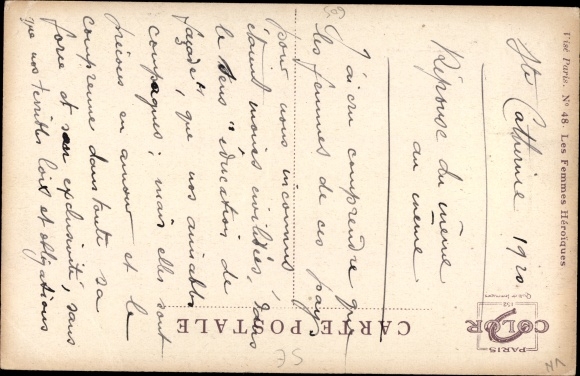 Ste Catherine 1920.
Réponse du même
au même
J'ai cru comprendre que
les femmes de ces pays,
pour nous inconnus
étaient moins civilisées, dans
le sens "éducation de
façade", que nos aimables
compagnes; mais elles sont
précieuses en amour et le
comprennent dans toute sa
force et son exclusivité, sans
que nos terribles lois et obligations
Visé Paris. N° 48 - Les Femmes Héroïques
CARTE POSTALE
COLOR
152
PARIS